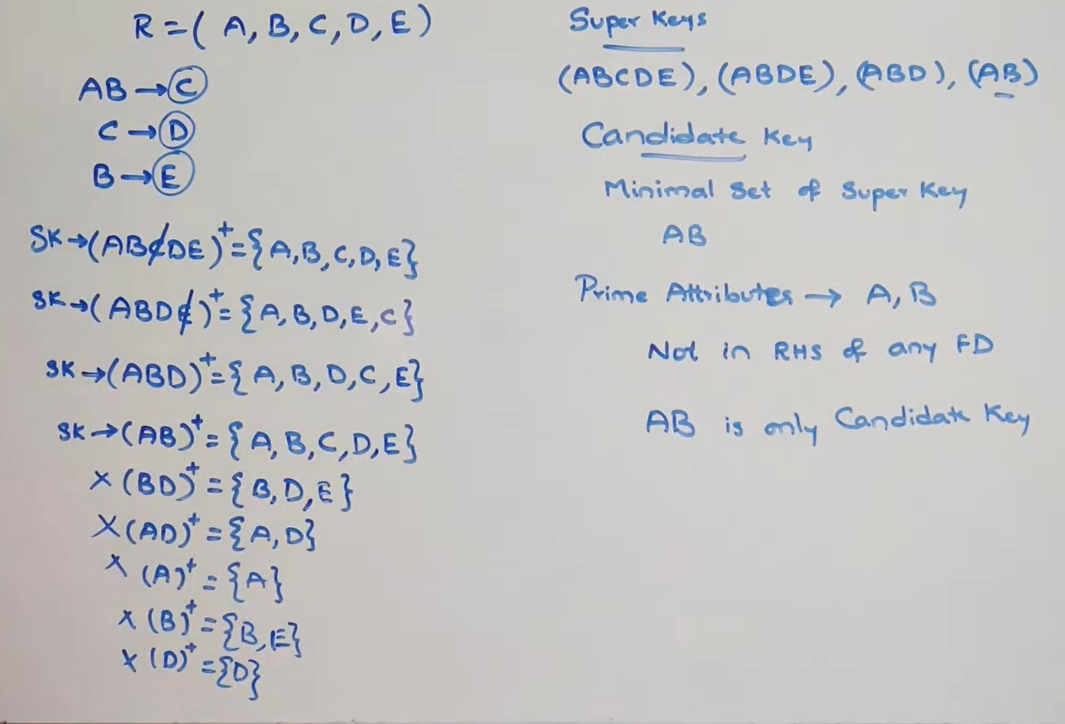 R = ( A, B, C, D, E )
AB → C
C → D
B → E
SK → (ABCDE)⁺ = {A, B, C, D, E}
SK → (ABDE)⁺ = {A, B, D, E, C}
SK → (ABD)⁺ = {A, B, D, C, E}
SK → (AB)⁺ = {A, B, C, D, E}
× (BD)⁺ = {B, D, E}
× (AD)⁺ = {A, D}
× (A)⁺ = {A}
× (B)⁺ = {B, E}
× (D)⁺ = {D}
Super Keys
(ABCDE), (ABDE), (ABD), (AB)
Candidate Key
Minimal Set of Super Key
AB
Prime Attributes → A, B
Not in RHS of any FD
AB is only Candidate Key